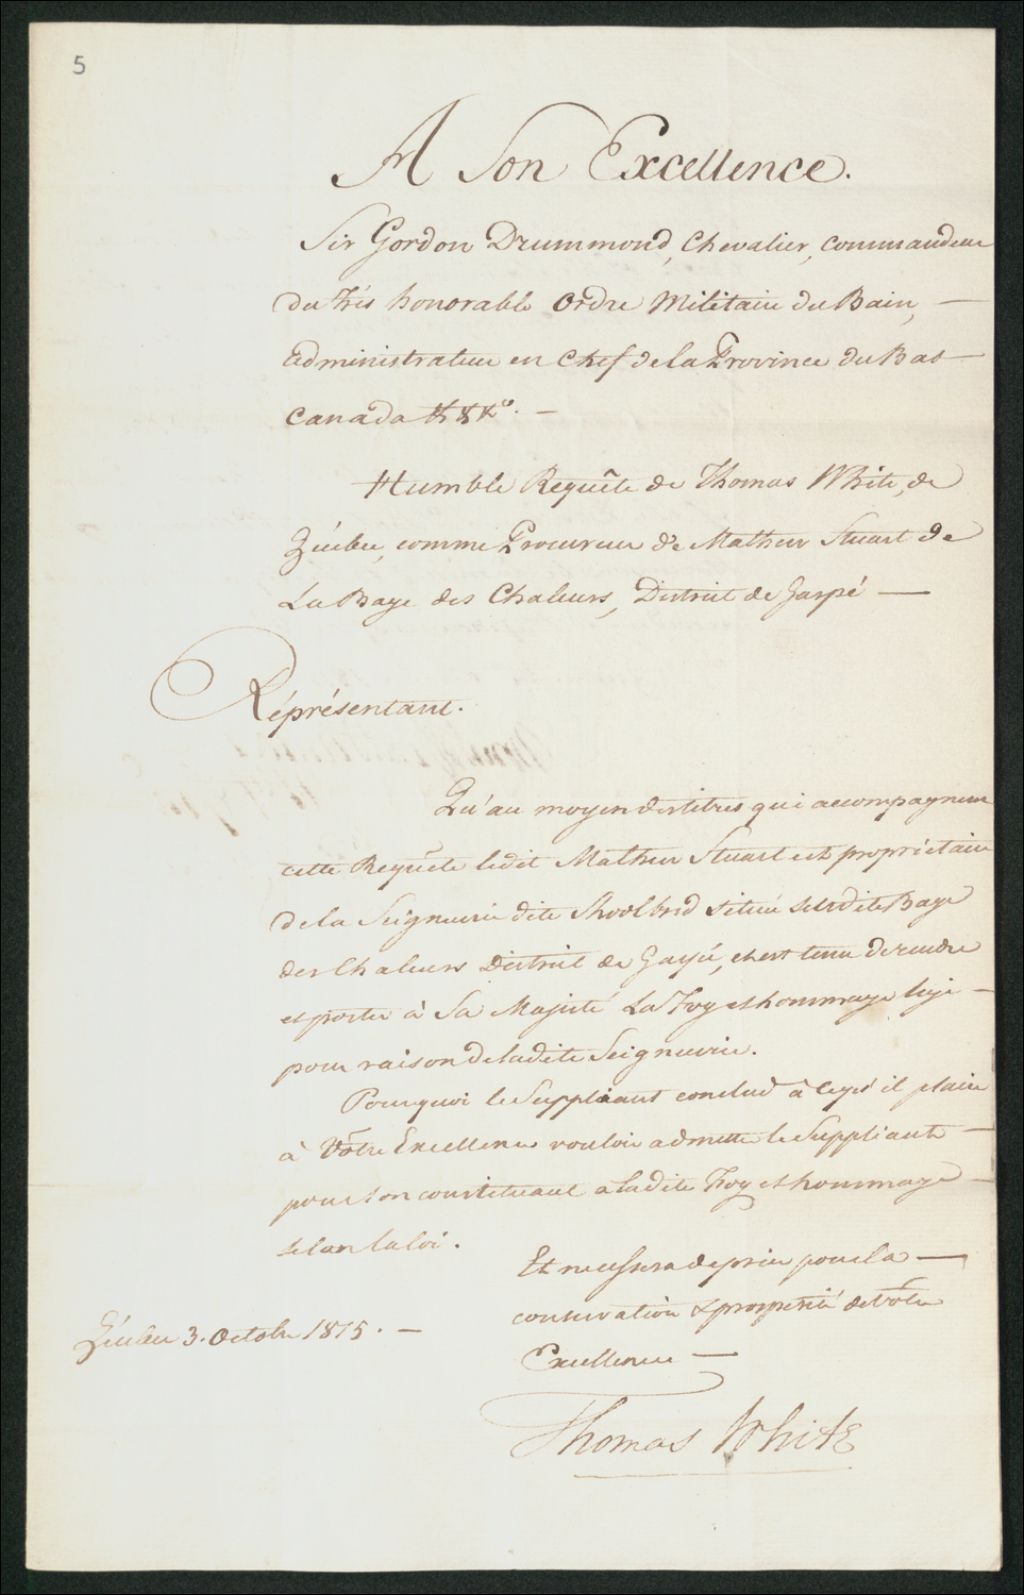 5
A Son Excellence.
Sir Gordon Drummond, Chevalier, Commandeur
du Trés honorable Ordre Militaire du Bain, —
administrateur en Chef de la Province du Bas —
Canada &c &c. —
Humble Requête de Thomas White, de
Québec, comme Procureur de Mathew Stuart de
La Baye des Chaleurs, District de Gaspé —
Réprésentant.
Qu'au moyen des titres qui accompagnent
cette Requête ledit Mathew Stuart est propriétaire
de la Seigneurie dite Shoolbred située sur dite Baye
des Chaleurs District de Gaspé, et est tenu de rendre
et porter à Sa Majesté La Foy et hommage lige —
pour raison de ladite Seigneurie.
Pourquoi le Suppliant conclud à ce qu'il plaise
à Vôtre Excellence vouloir admettre le Suppliant —
pour son constituant a ladite Foy et hommage —
selon la loi.
Et ne cessera de prier pour la —
conservation & prosperité de Vôtre
Excellence —
Québec 3. Octobre 1815. —
Thomas White